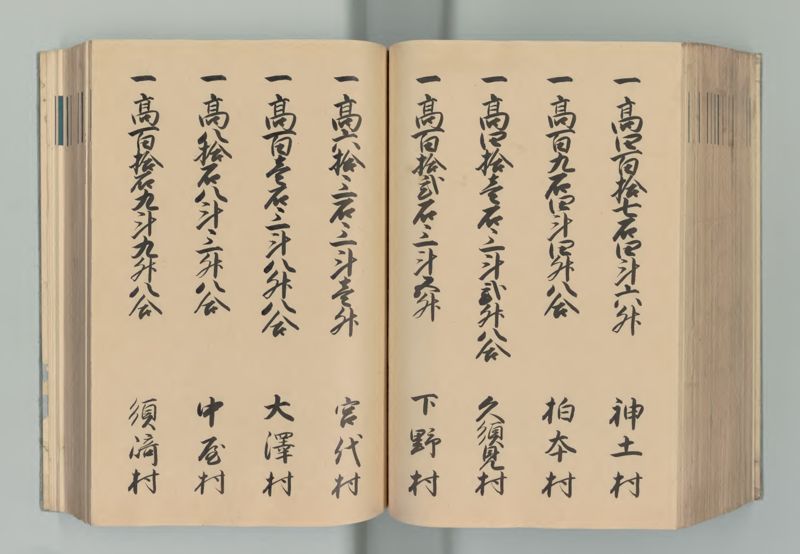 一高四百拾七石四斗六升 神土村
一高百九石四斗四升八合 柏本村
一高四拾壱石三斗弐升八合 久須見村
一高百拾弐石三斗五升 下野村
一高六拾三石三斗壱升 宮代村
一高百壱石三斗八升八合 大澤村
一高八拾石八斗三升八合 中屋村
一高百拾石九斗九升八合 須崎村